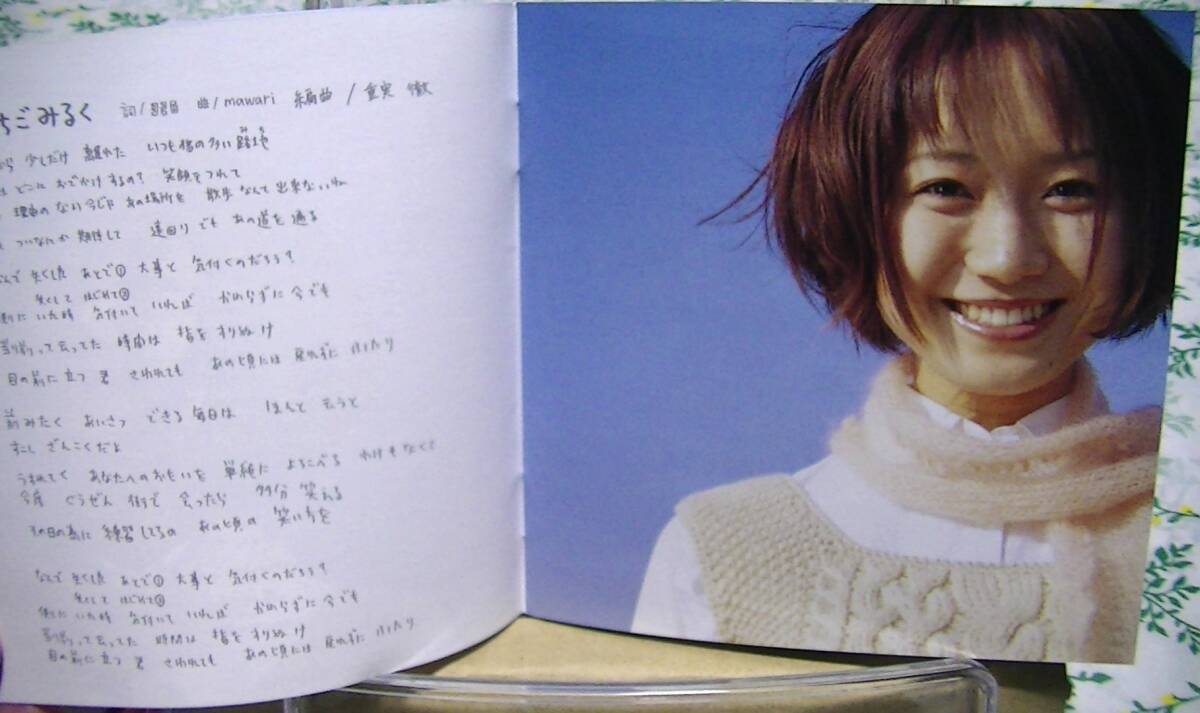 ちごみるく 詞/ 曲/mawari 編曲/重実 徹
ら 少しだけ 離れた いつも猫の多い 路地
どこに おでかけするの? 笑顔をつれて
理由の ない今じゃ あの場所を 散歩なんて出来ないいね
ついなんか 期待して 遠回りでも あの道を通る
なんで 失くした あとで① 大事と 気付くのだろう?
失くして はじめて②
側に いた時 気付いて いれば かわらずに今でも
当り前って云ってた 時間は 指を すりぬけ
目の前に立つ 君 さわれても あの頃には 戻れずに ふたり
前みたく あいさつ できる毎日は ほんと 云うと
すこし ざんこくだよ
うまれてく あなたへのおもいを 単純に よろこべる わけもなくて
今度 ぐうぜん 街で 会ったら 多分 笑える
その日の為に 練習してるの あの頃の 笑い方を
なんで 失くした あとで① 大事と 気付くのだろう?
失くして はじめて②
側に いた時 気付いて いれば かわらずに今でも
当り前って云ってた 時間は 指を すりぬけ
目の前に立つ 君 さわれても あの頃には 戻れずに ふたり